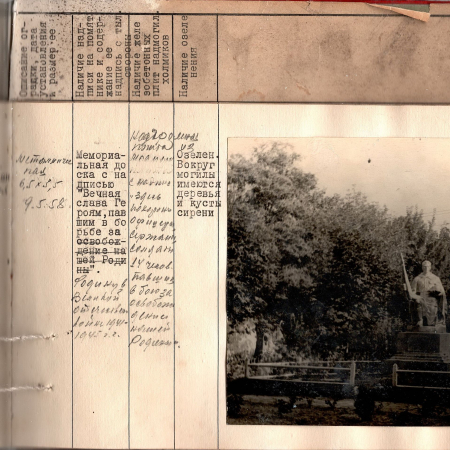 Описание ог-
рады, дата
установления
и размер ее
Наличие над-
писи на памят
нике и содер-
жание ее
надпись с тыл
стороны
Наличие желе
зобетонных
плит надмогил
холмиков
Наличие озеле
нения
6,5 х 5,5
9.5.58
Мемориа-
льная до
ска с на
дписью
"Вечная
слава Ге
роям, пав
шим в бо
рьбе за
освобож-
дение на
шей Роди
ны".
Родину в
Великой
отечествен
войне 1941-
1945 г.г.
Надгробная
плита из
здесь
похорон
офицеры
сержанты
солдаты
14 человек
павших
в бою за
освобож
дение
нашей
Родины".
Озелен.
Вокруг
могилы
имеются
деревья
и кусты
сирени